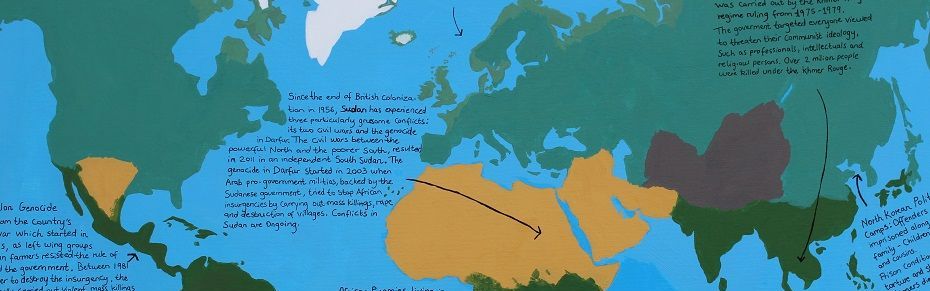 was carried out by the Khmer
regime ruling from 1975-1979.
The goverment targeted everyone viewed
to threaten their Communist ideology,
Such as professionals, intellectuals and
religious persons. Over 2 million people
were killed under the Khmer Rouge.
Since the end of British Coloniza-
tion in 1956, Sudan has experienced
three particularly gruesome Conflicts:
its two Civil wars and the genocide
in Darfur. The Civil wars between the
powerful North and the poorer South, resulted
in 2011 in an independent South Sudan. The
genocide in Darfur started in 2003 when
Arab pro-government militias, backed by the
Sudanese government, tried to Stop African
insurgencies by Carrying out mass killings, rape
and destruction of villages. Conflicts in
Sudan are Ongoing.
Genocide
the Country's
war which started in
as left wing groups
farmers resisted the rule of
the government. Between 1981
to destroy the insurgency, the
carried out violent mass killings
North Korean
Camps: Offenders
imprisoned along
family - Children
and Cousins.
Prison Condition
torture and